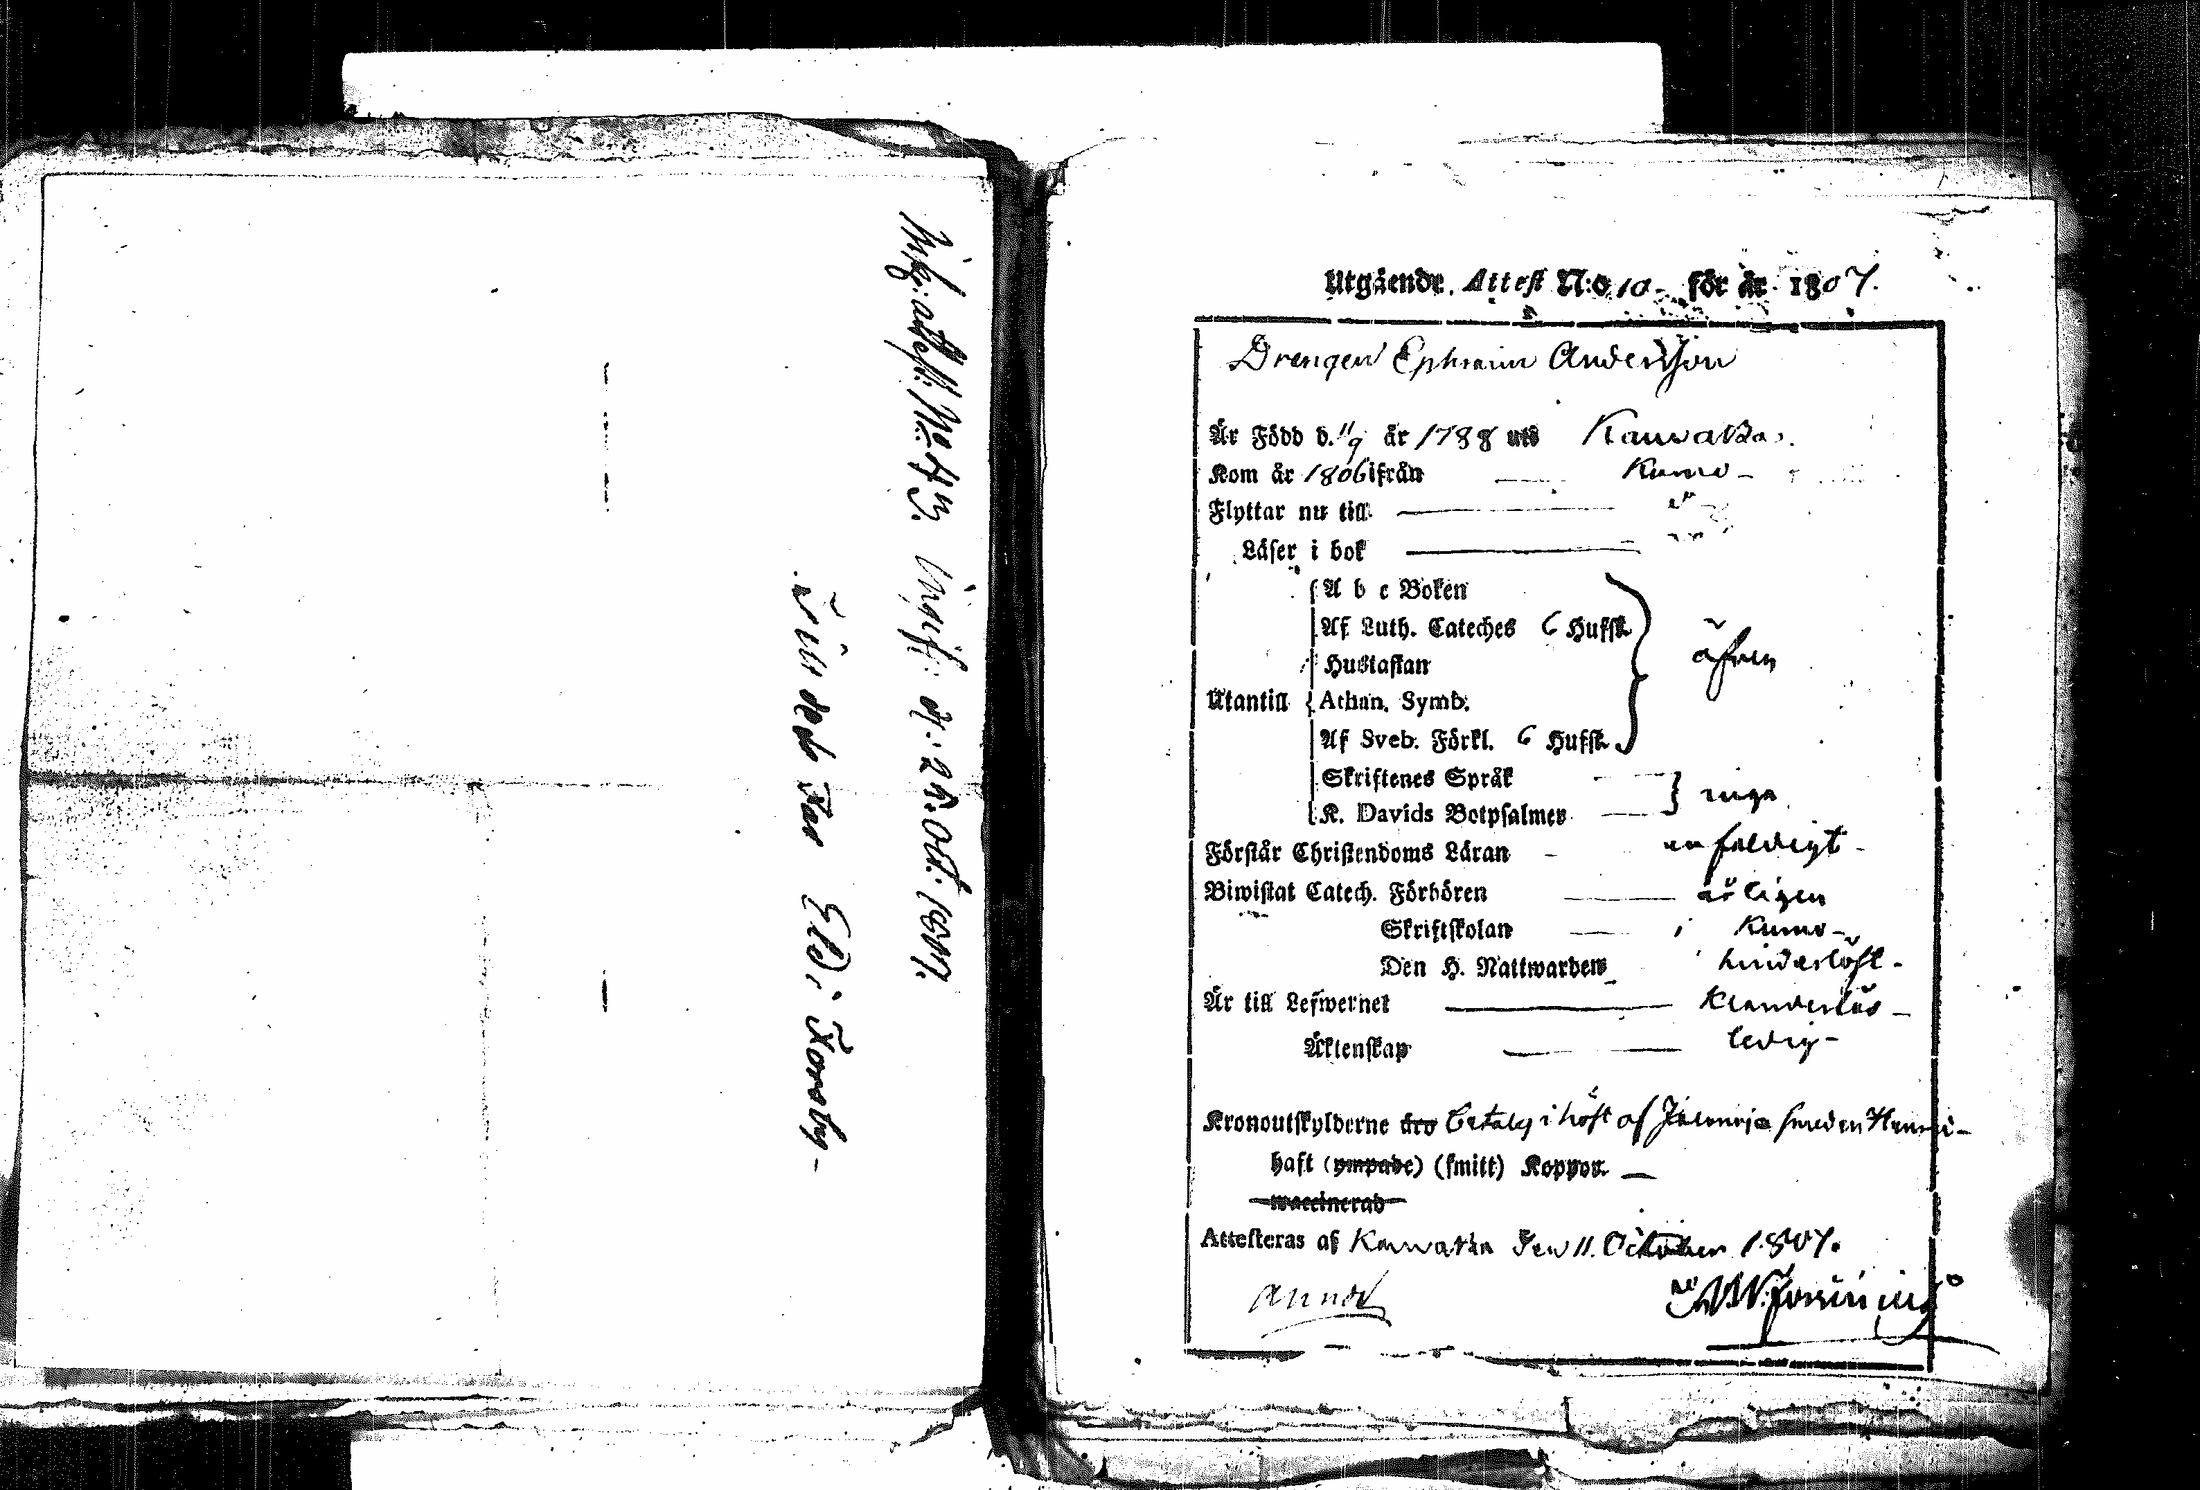 Utgående. Attest N:o 10 för år 1807.
Drengen Ephraim Andersson
Är Född d. 11/9 år 1788 uti Kauvatza.
Kom år 1806 ifrån Kumo
Flyttar nu till
Läser i bok
A b c Boken
Af Luth. Cateches 6 Hufst.
Hustaflan
Utantill Athan. Symb.
Af Sveb. Förkl. 6 Hufst.
äfven
Skriftenes Språk
K. Davids Botpsalmer
inga
Förstår Christendoms Läran enfaldigt
Biwistat Catech. Förhören årligen
Skriftskolan i Kumo
Den H. Nattwarden hinderlöst
Är till Lefwernet klanderlös
Äktenskap ledig
Kronoutskylderne äro betalg i höst af smeden
haft (ympade) (smitt) Koppor
waccinerad
Attesteras af Kauvatza den 11. October 1807.
attest. No 43. Ingif. d. 25. Oct. 1807.
Forsby